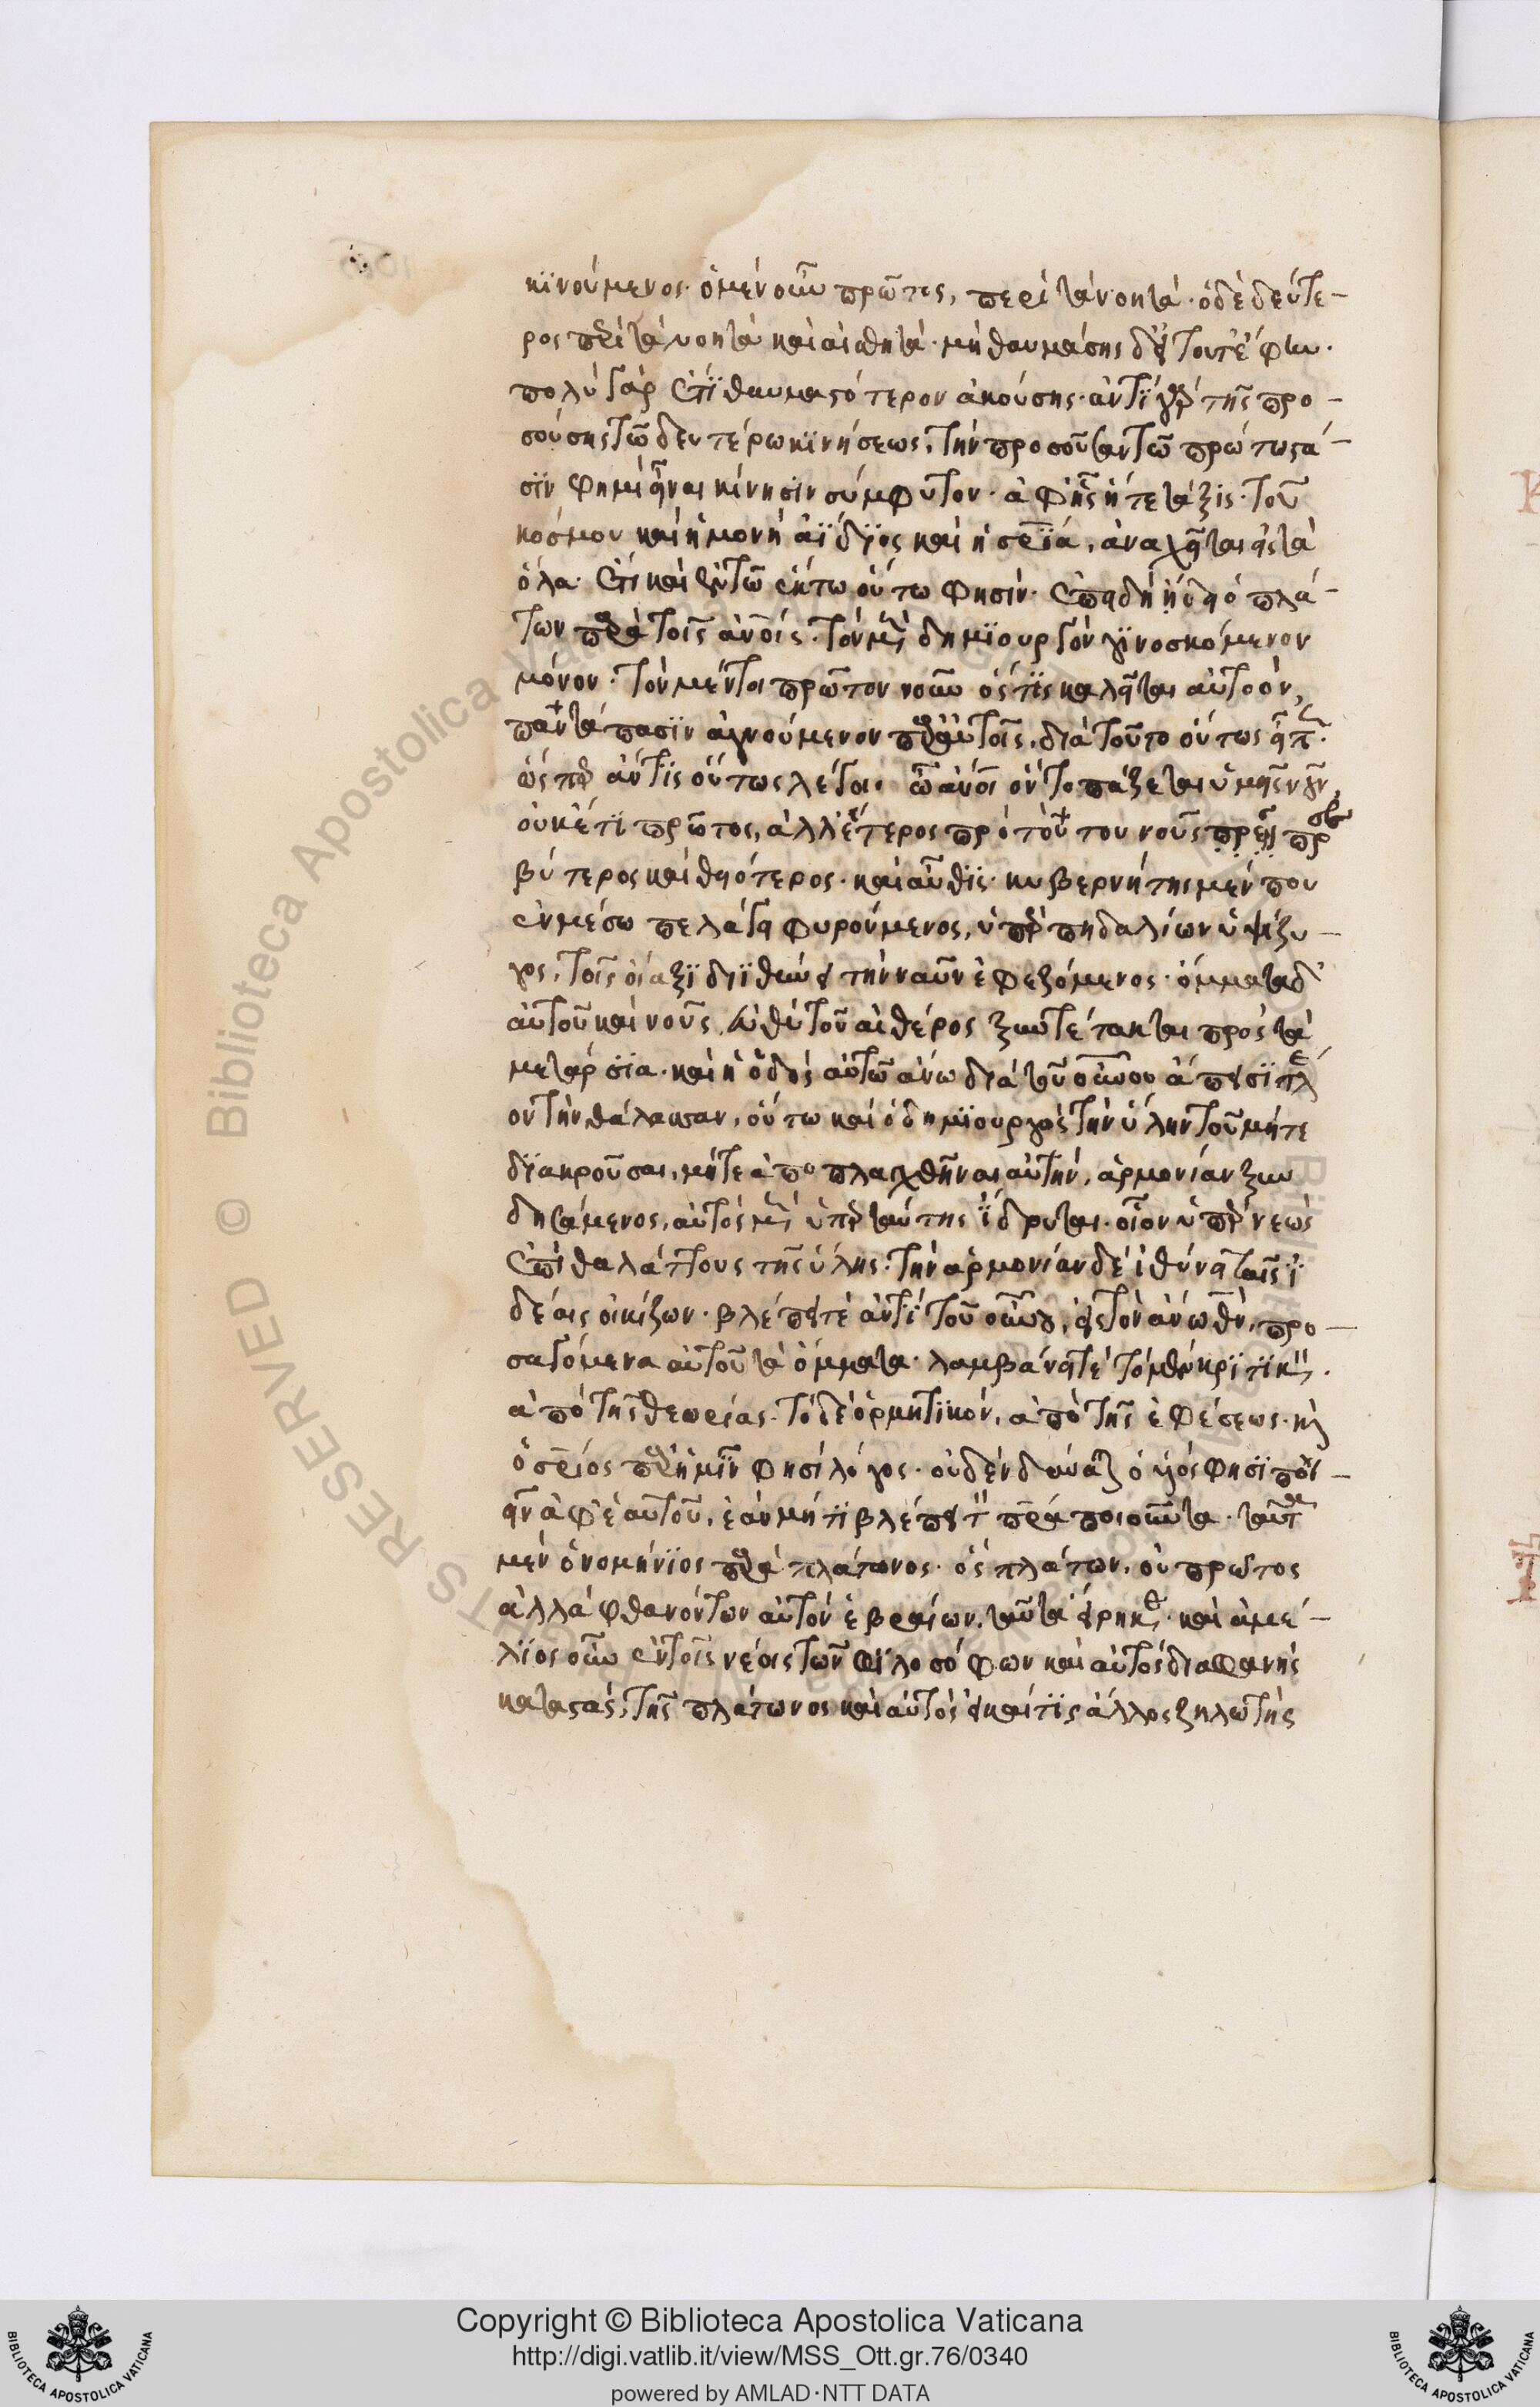 κϊνούμενος· ὁ μὲν οὖν πρῶτος, περὶ τὰ νοητά· ὁ δὲ δεύτε-
ρος περὶ τὰ νοητὰ καὶ αἰσθητά· μὴ θαυμάσης δ' εἰ τοῦτ' ἔφην·
πολὺ γὰρ ἔτϊ θαυμαστότερον ἀκούσης· ἀντϊ γὰρ τῆς προ-
σούσης τῶ δευτέρω κϊνήσεως, τὴν προσοῦσαν τῶ πρώτω στά-
σϊν φημὶ εἶναι κίνησϊν σύμφυτον· ἀφ' ἧς ἥ τε τάξϊς τοῦ
κόσμου καὶ ἡ μονὴ ἀΐδϊος καὶ ἡ σρϊα, ἀναχεῖται εἰς τὰ
ὅλα· ἔτι καὶ ἐν τῶ ἕκτω οὕτω φησίν· ἐπειδὴ ἤδει ὁ πλά-
των παρὰ τοῖς ἀνοις τὸν μὲν δημϊουργὸν γϊνοσκόμενον
μόνον· τὸν μέντοι πρῶτον νοῦν ὅστϊς καλεῖται αὐτοὸν,
παντάπασϊν ἀγνούμενον παρ' αὐτοῖς, διὰ τοῦτο οὕτως εἶπεν·
ὥσπερ ἄν τϊς οὕτως λέγοι· ὦ ἀνοι ὃν τοπάζεται ὑμεῖς νοῦν,
οὐκ ἔτϊ πρῶτος, ἀλλ' ἕτερος πρὸ τούτου νοῦς πρεσ
βύτερος καὶ θειότερος· καὶ αὖθϊς· κυβερνήτης μέν που
ἐν μέσω πελάγει φυρούμενος, ὑπὲρ πηδαλίων ὑψίζυ-
γος, τοῖς οἴαξϊ διϊθύνει τὴν ναῦν ἐφεζόμενος· ὄμματα δ'
αὐτοῦ καὶ νοῦς εὐθὺ τοῦ αἰθέρος ξυντέτακται πρὸς τὰ
μετάρσϊα· καὶ ἡ ὁδὸς αὐτῶ ἄνω διὰ τοῦ οὐνοῦ ἄπεισϊ πλέ
οντϊ τὴν θάλασσαν, οὕτω καὶ ὁ δημϊουργὸς τὴν ὕλην τοῦ μήτε
δϊακροῦσαι, μήτε ἀποπλαγχθῆναι αὐτὴν, ἁρμονίαν ξυν
δησάμενος, αὐτὸς μὲν ὑπὲρ ταύτης ἵδρυται· οἷον ὑπὲρ νεὼς
ἐπὶ θαλάττους τῆς ὕλης· τὴν ἁρμονίαν δὲ ἰθύνει ταῖς ϊ
δέαις οἰκίζων· βλέπει τὲ ἀντὶ τοῦ οὐνοῦ, εἰς τὸν ἄνω θν, προ-
σαγόμενα αὐτοῦ τὰ ὄμματα· λαμβάνει τὲ τὸ μὲν κρϊτϊκὸν
ἀπὸ τῆς θεωρίας· τὸ δὲ ὁρμητϊκὸν, ἀπὸ τῆς ἐφέσεως· καὶ
ὁ σρϊος παρ' ἡμῖν φησὶ λόγος· οὐδὲν δύναται ὁ υἱός φησϊ ποι-
εῖν ἀφ' ἑαυτοῦ, ἐὰν μή τϊ βλέπει τὸν πρα ποιοῦντα· ταῦτα
μὲν ὁ νομήνϊος παρὰ πλάτωνος· ὃς πλάτων, οὐ πρῶτος
ἀλλὰ φθανόντων αὐτὸν ἑβραίων, ταῦτα εἴρηκε· καὶ ἀμέ-
λϊος οὖν ἐν τοῖς νέοις τῶν φϊλοσόφων καὶ αὐτὸς διαφανὴς
καταστὰς, τῆς πλάτωνος καὶ αὐτὸς εἰ καί τϊς ἄλλος ζηλωτὴς
Copyright © Biblioteca Apostolica Vaticana
http://digi.vatlib.it/view/MSS_Ott.gr.76/0340
powered by AMLAD·NTT DATA